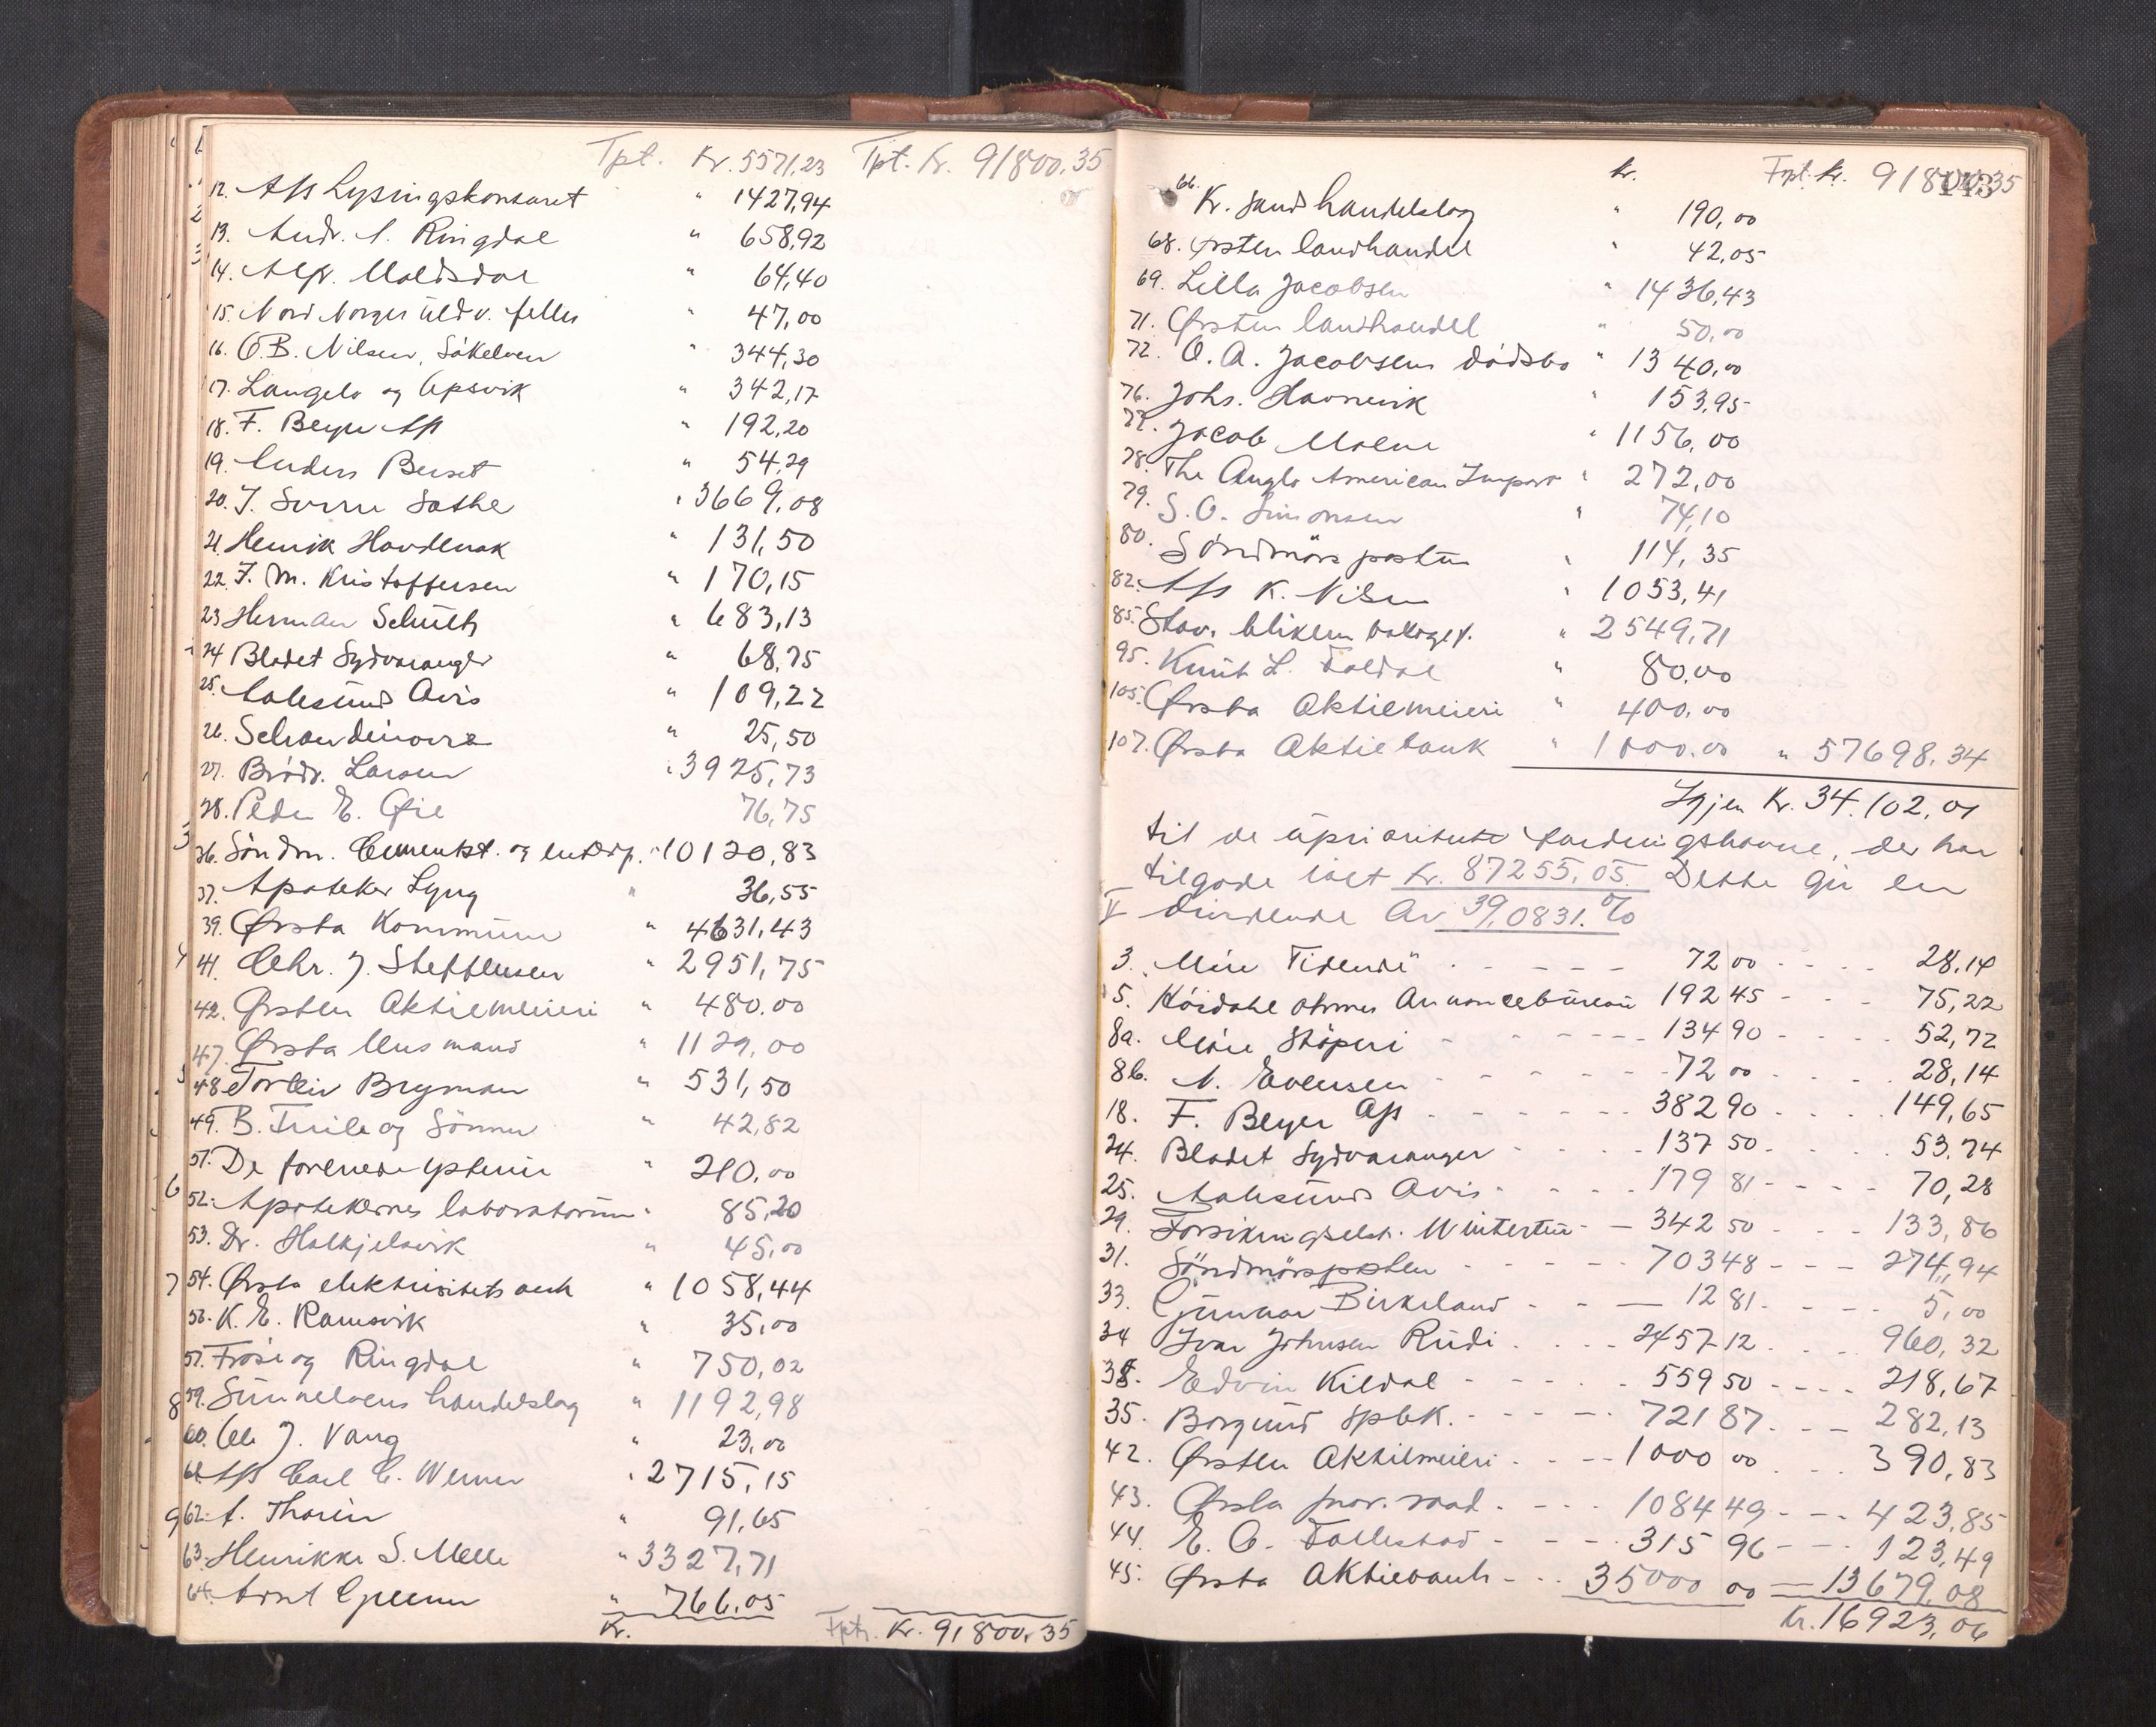 Tpt. Kr. 5571,23 Tpt. Kr. 91800,35
12. A/s Lysingskontoret " 1427,94
13. Andr. A. Ringdal " 658,92
14. Alfr. Maldsdal " 64,40
15. Nord Norges uldv. felles " 47,00
16. O.B. Nilsen, Säkelven " 344,30
17. Langelo og Apsvik " 342,17
18. F. Beyer A/s " 192,20
19. Anders Berset " 54,29
20. J. Sverre Sathe " 3669,08
21. Henrik Hovdenak " 131,50
22. F. M. Kristoffersen " 170,15
23 Herman Schult " 683,13
24 Bladet Sydvaranger " 68,75
25. Aalesunds Avis " 109,22
26. " 25,50
27. Brödr. Larsen " 3925,73
28. Peder E. Øie 76,75
36. Söndm. Cementst. og entrep. " 10120,83
37. Apoteker Lyng " 36,55
39. Ørsta Kommune " 4631,43
41. Chr. J. Steffensen " 2951,75
42. Ørsten Aktiemeieri " 480.00
47. Ørsta Ungmand " 1129,00
48 Torleiv Brynman " 531,50
49. B. Friile og Sönner " 42,82
51. De forenede ysterier " 210,00
52. Apotekernes laboratorium " 85,20
53. Dr. Halkjelsvik " 45,00
54. Ørsta elektrisitetsverk " 1058,44
56. K. E. Ramsvik " 35,00
57. Fröse og Ringdal " 750,02
59. Sunnelvens handelslag " 1192,98
60. Ole J. Vang " 23,00
61. A/s Carl C. Werner " 2715,15
62. A. Thorin " 91,65
63. Henrikke S. Melle " 3327,71
64. Arnt Gjerme " 766,05
Kr. Fptr. Kr. 91800,35
143
Kr. Frpt. Kr. 91800,35
66. Kr. Sunds handelslag " 190,00
68. Ørsten landhandel " 42,05
69. Lilla Jacobsen " 1436,43
71. Ørsten landhandel " 50,00
72. O. A. Jacobsens dödsbo " 1340,00
76. Johs. Havnevik " 153,95
77. Jacob Malme " 1156,00
78. The Anglo American Import " 272,00
79. S. O. Simonsen " 74,10
80. Söndmörsposten " 114,35
82. A/s K. Nilsen " 1053,41
85. Stav. blikemballagef. " 2549,71
95. Knut L. Foldal " 80,00
105. Ørsta Aktiemeieri " 400,00
107. Ørsta Aktiebank " 1000.00 " 57698,34
Igjen Kr. 34.102,01
til de uprioriterte fordringshavere, der har
tilgode ialt Kr. 87255,05. Dette gir en
V dividende av 39,0831.%
3. "Möre Tidende" 72 00 28,14
5. Höidahl Ohmes Annoncebureau 192 45 75,22
8a. Möre Stöperi 134 90 52,72
8b. A. Evensen 72 00 28,14
18. F. Beyer A/s 382 90 149,65
24. Bladet Sydvaranger 137 50 53,74
25. Aalesunds Avis 179 81 70,28
29. Forsikringselsk. Wintertur 342 50 133,86
31. Söndmörsposten 703 48 274,94
33. Gunnar Birkeland 12 81 5,00
34 Ivar Johnsen Rudi 2457 12 960,32
38. Edvin Kildal 559 50 218,67
35. Borgund Spbk. 721 87 282,13
42. Ørsten Aktiemeieri 1000 00 390,83
43. Ørsta prov. raad 1084 49 423,85
44. E. O. Follestad 315 96 123,49
45. Ørsta Aktiebank 35000 00 13679,08
Kr. 16923,06